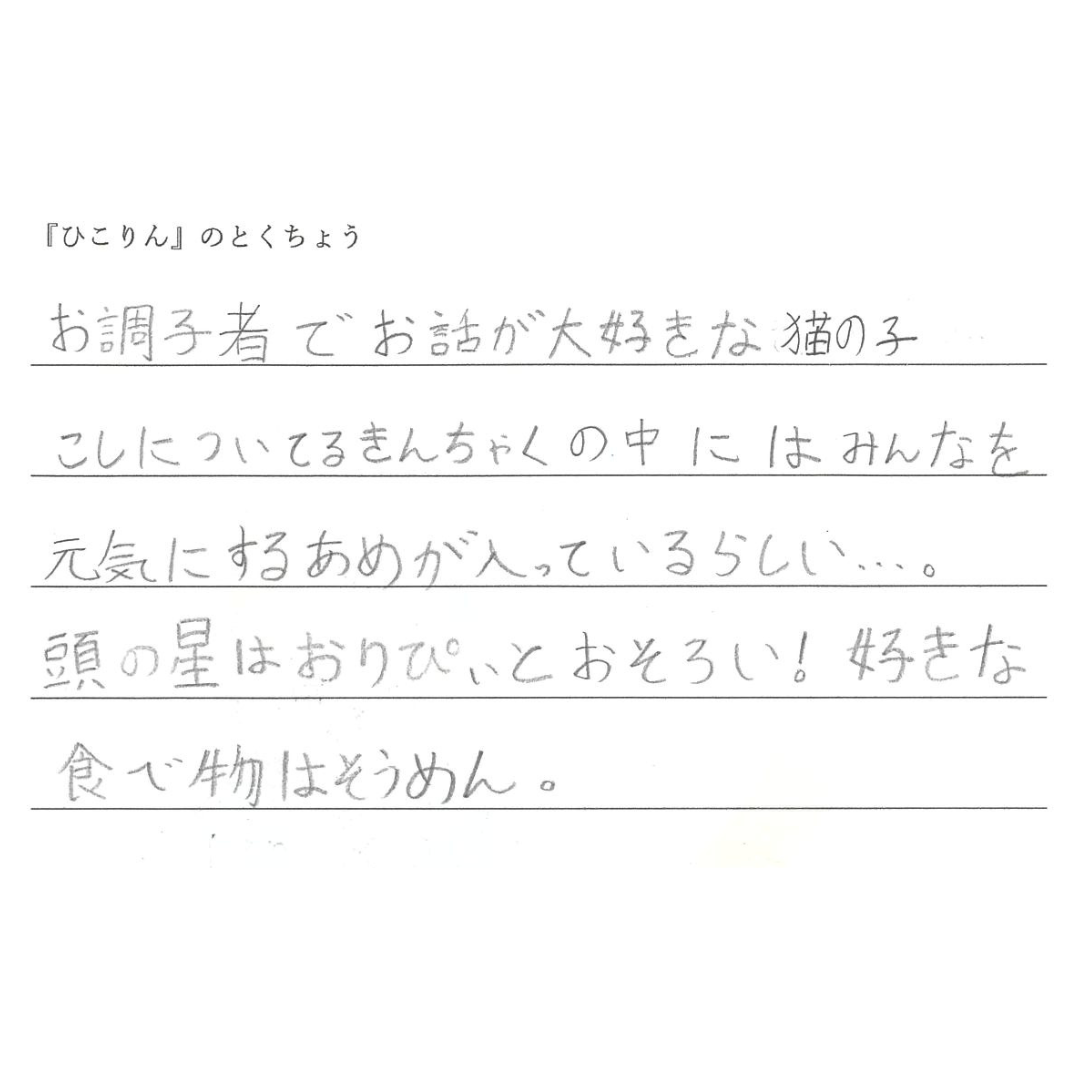 『ひこりん』のとくちょう
お調子者でお話が大好きな猫の子
こしについてるきんちゃくの中にはみんなを
元気にするあめが入っているらしい…。
頭の星はおりぴぃとおそろい！好きな
食べ物はそうめん。